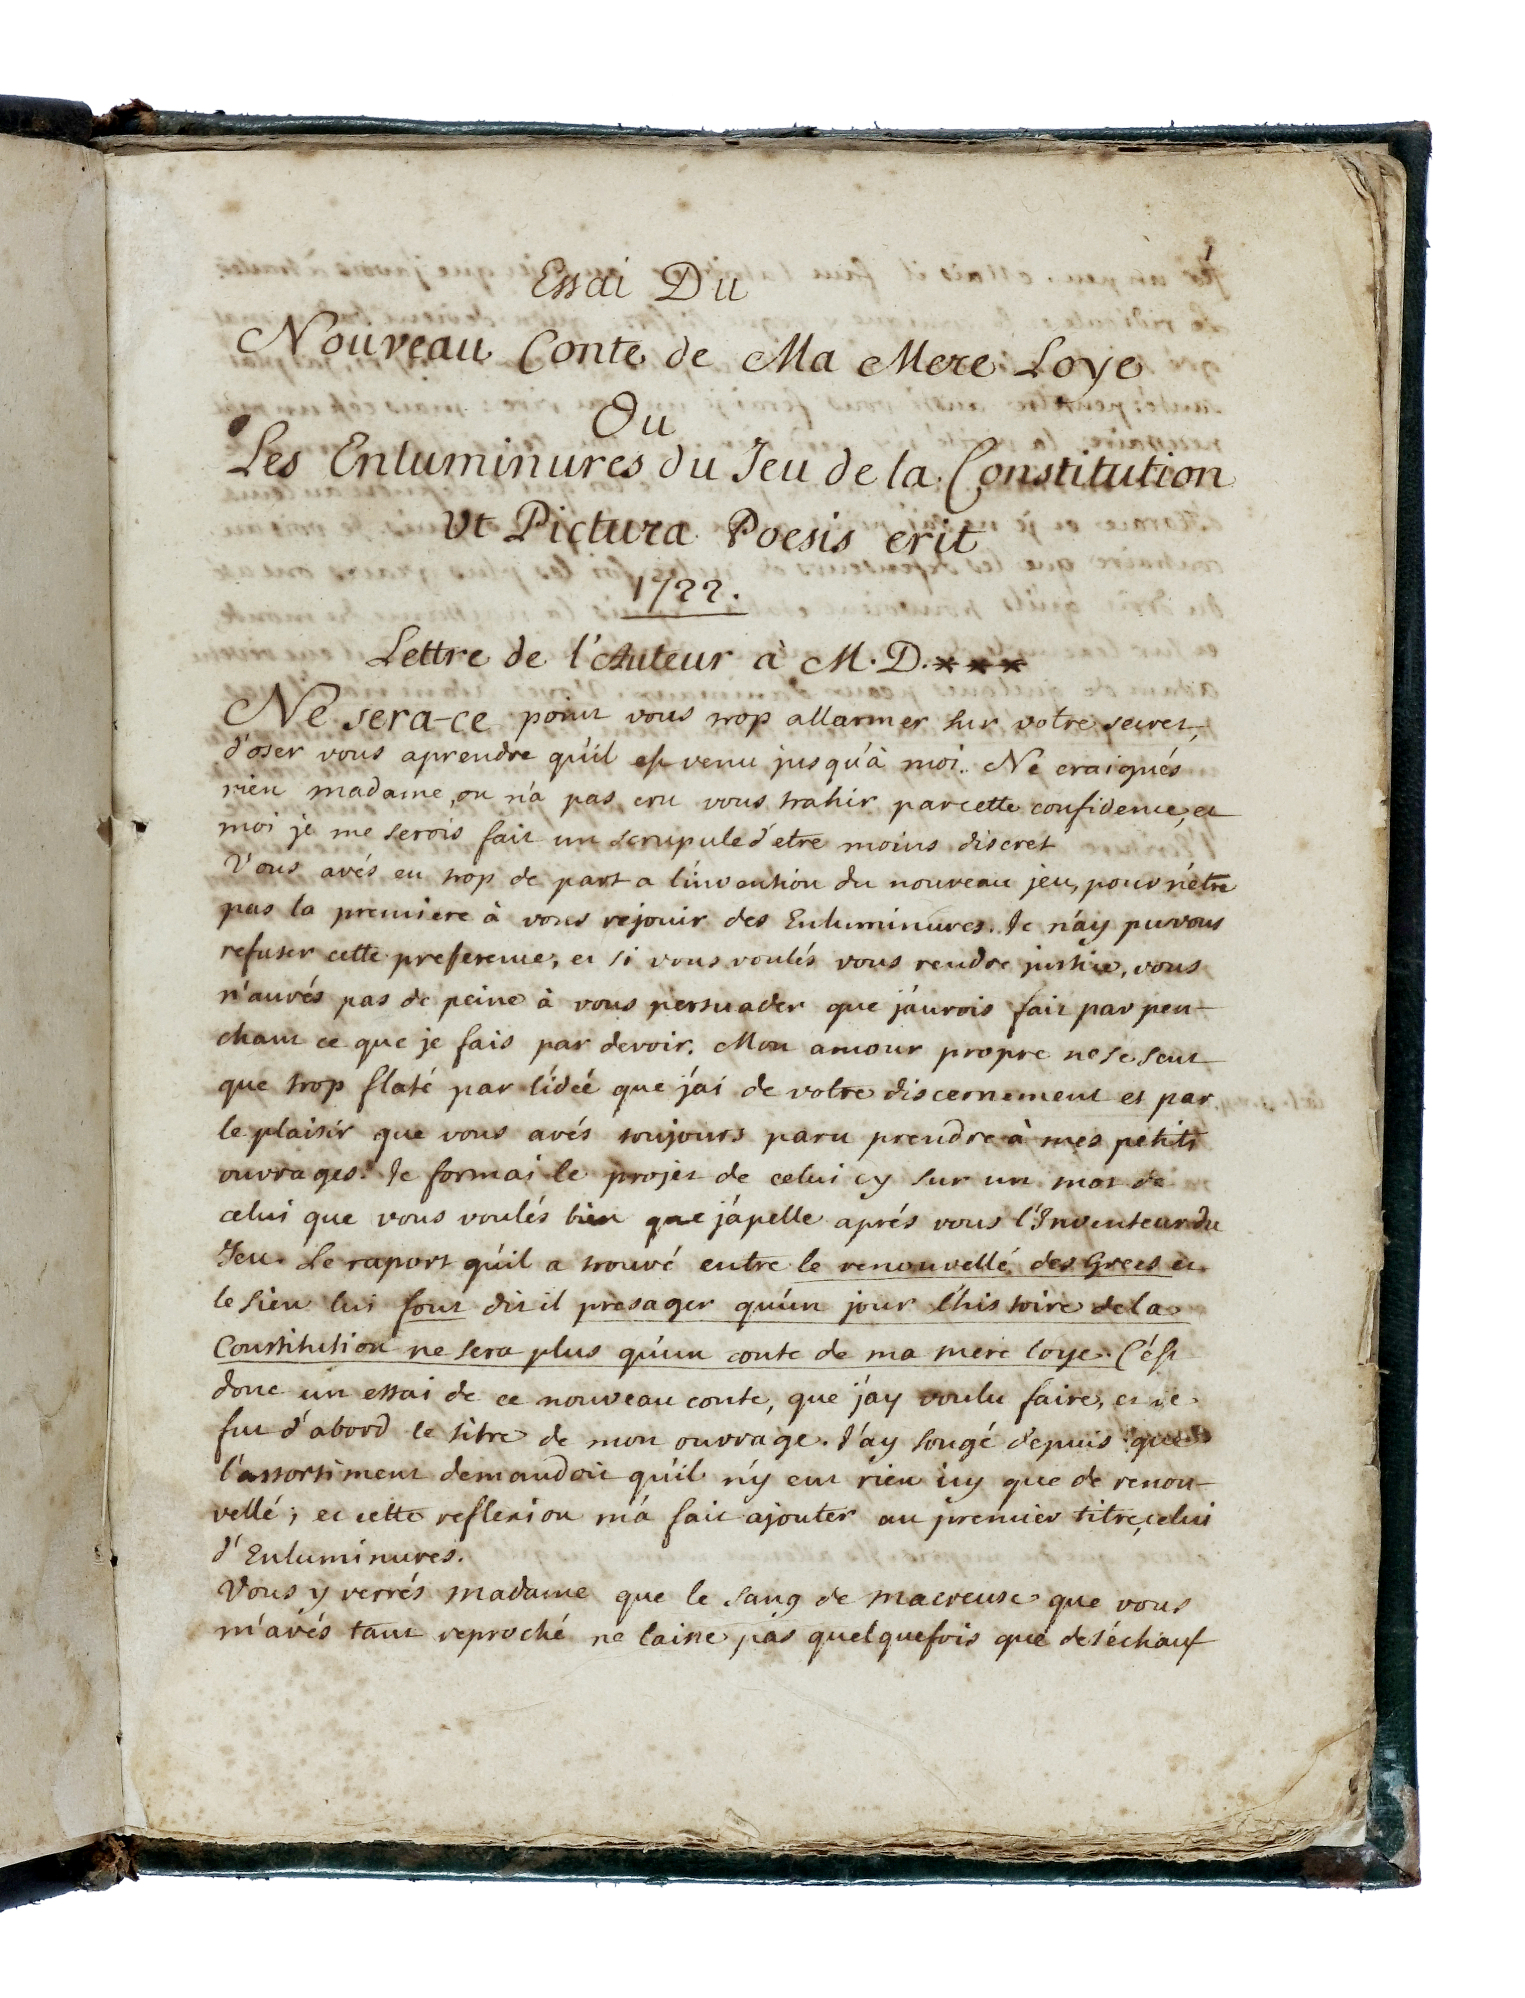 1
Essai Du
Nouveau Conte de Ma Mere Loye
Ou
Les Enluminures du Jeu de la Constitution
Ut Pictura Poesis erit
1722.
Lettre de l'Auteur à M. D. ***
Ne sera-ce point vous trop allarmer sur votre secret,
d'oser vous aprendre qu'il est venu jusqu'à moi. Ne craignés
rien madame, on n'a pas cru vous trahir par cette confidence, et
moi je me serois fait un scrupule d'etre moins discret
Vous avés eu trop de part a l'invention du nouveau jeu, pour n'étre
pas la premiere à vous rejouir des Enluminures. Je n'ay pu vous
refuser cette preference, et si vous voulés vous rendre justice, vous
n'aurés pas de peine à vous persuader que j'aurois fait par pen-
chant ce que je fais par devoir. Mon amour propre ne se sent
que trop flaté par l'idée que j'ai de votre discernement et par
le plaisir que vous avés toujours paru prendre à mes petits
ouvrages. Je formai le projet de celui cy sur un mot de
celui que vous voulés bien que j'apelle aprés vous l'Inventeur du
Jeu. Le raport qu'il a trouvé entre le renouvellé des Grecs et
le sien lui font dit il presager qu'un jour l'histoire de la
Constitution ne sera plus qu'un conte de ma mere loye. C'est
donc un essai de ce nouveau conte, que j'ay voulu faire, et ce
fut d'abord le titre de mon ouvrage. J'ay songé depuis que
l'assortiment demandoit qu'il n'y eut rien icy que de renou-
vellé; et cette reflexion m'a fait ajouter au premier titre, celui
d'Enluminures.
Vous y verrés madame que le sang de macreuse que vous
m'avés tant reproché ne laisse pas quelquefois que de s'échauf